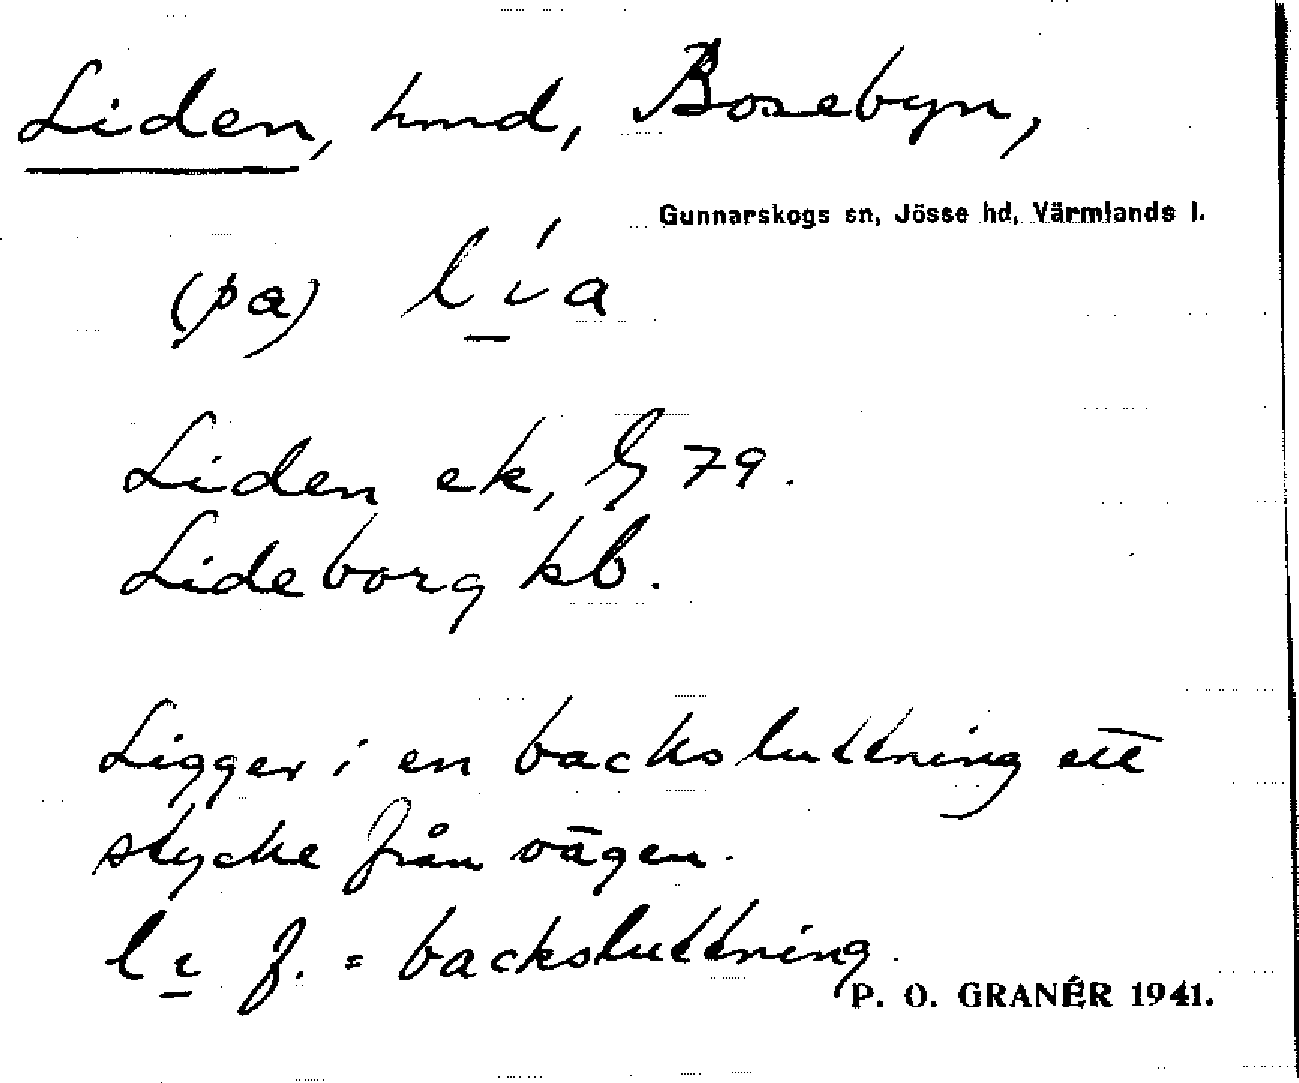 Liden, hmd, Bosebyn,
Gunnarskogs sn, Jösse hd, Värmlands l.
(pa) lı́a
Liden ek, G 79.
Lideborg kb.
Ligger i en backsluttning ett
stycke från vägen.
lı f. = backsluttning.
P. O. GRANÉR 1941.